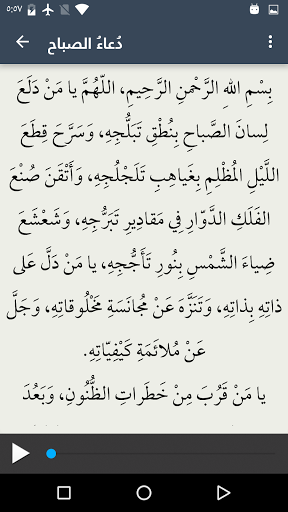 ٥:٥٧
دُعاءُ الصباح
بِسْمِ اللهِ الرَّحْمنِ الرَّحِيمِ، اللّهُمَّ يا مَنْ دَلَعَ
لِسانَ الصَّباحِ بِنُطْقِ تَبَلُّجِهِ، وَسَرَّحَ قِطَعَ
اللَّيْلِ المُظْلِمِ بِغَياهِبِ تَلَجْلُجِهِ، وَأَتْقَنَ صُنْعَ
الفَلَكِ الدَّوّارِ فِي مَقادِيرِ تَبَرُّجِهِ، وَشَعْشَعَ
ضِياءَ الشَّمْسِ بِنُورِ تَأَجُّجِهِ، يا مَنْ دَلَّ عَلى
ذاتِهِ بِذاتِهِ، وَتَنَزَّهَ عَنْ مُجانَسَةِ مَخْلُوقاتِهِ، وَجَلَّ
عَنْ مُلائَمَةِ كَيْفِيّاتِهِ.
يا مَنْ قَرُبَ مِنْ خَطَراتِ الظُّنُونِ، وَبَعُدَ